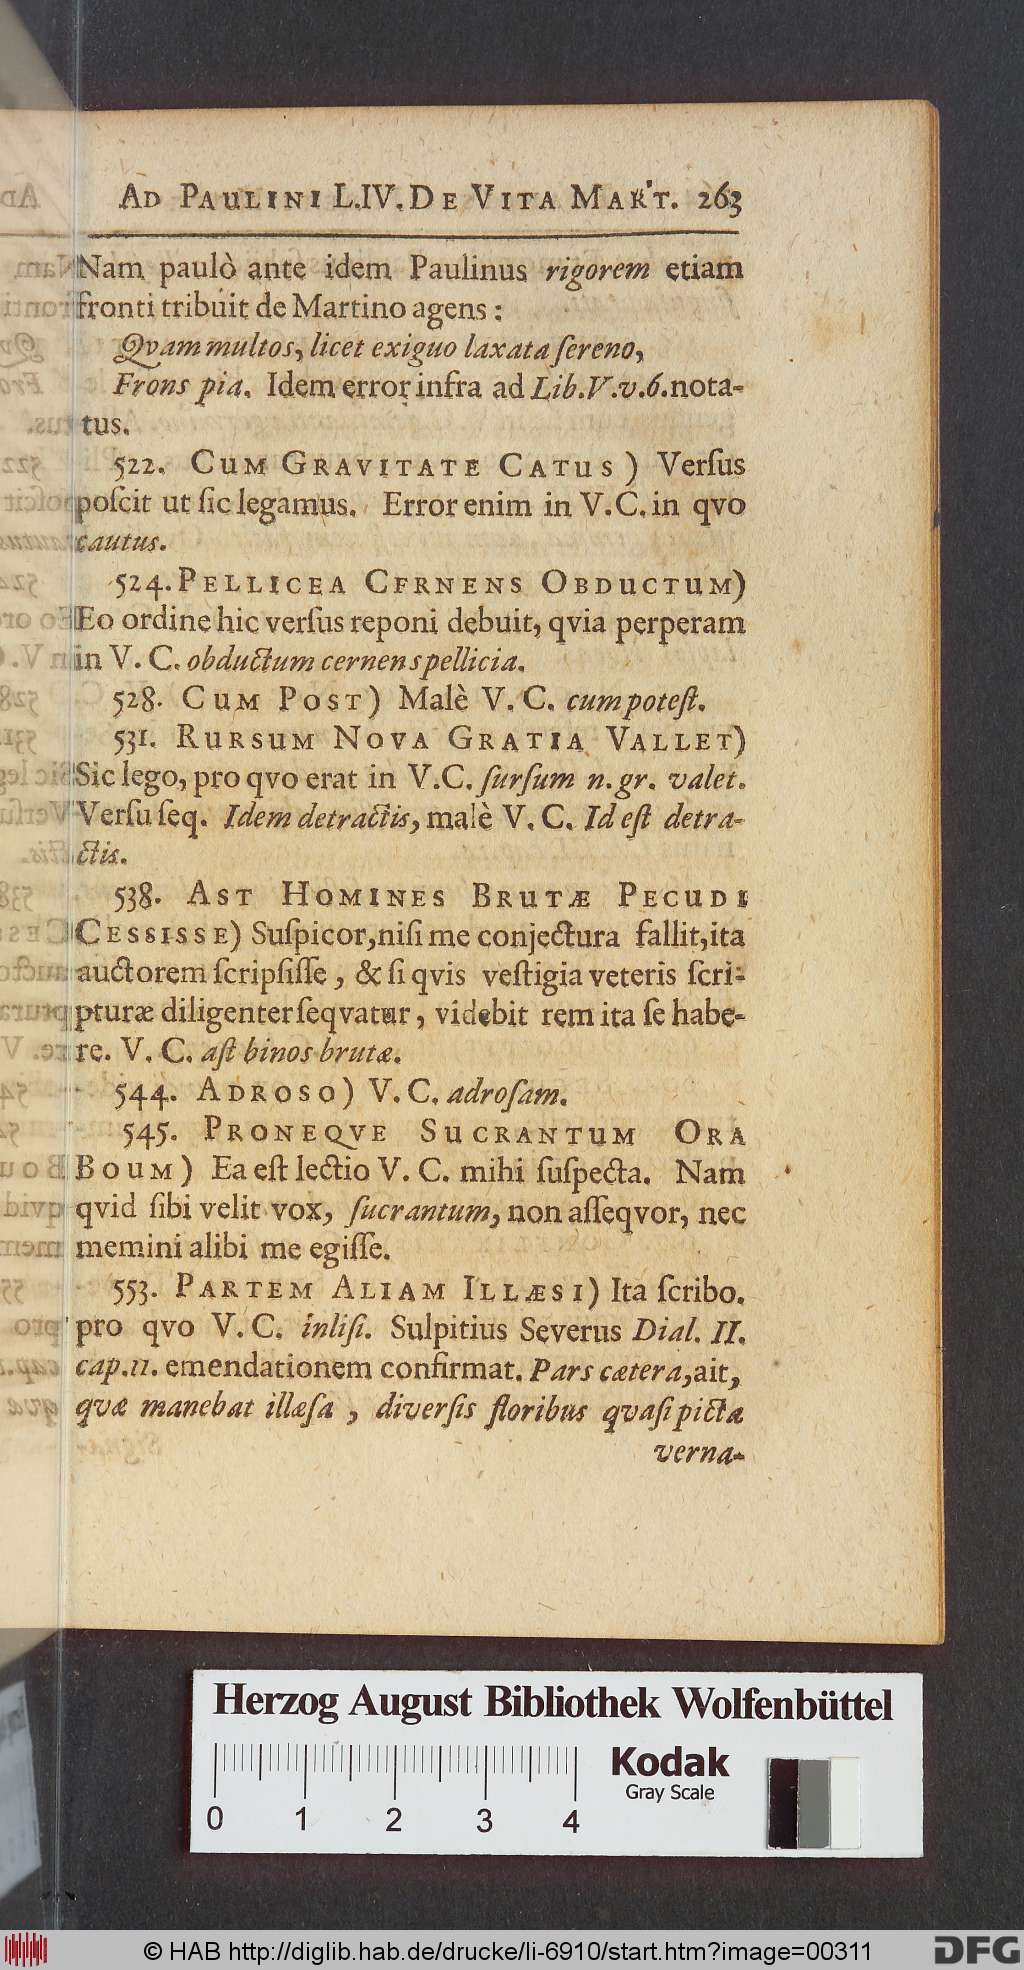 AD PAULINI L.IV. DE VITA MART. 263
Nam paulò ante idem Paulinus rigorem etiam
fronti tribuit de Martino agens:
Qvam multos, licet exiguo laxata ſereno,
Frons pia. Idem error infra ad Lib. V. v. 6. nota-
tus.
522. CUM GRAVITATE CATUS) Verſus
poſcit ut ſic legamus. Error enim in V. C. in qvo
cautus.
524. PELLICEA CERNENS OBDUCTUM)
Eo ordine hic verſus reponi debuit, qvia perperam
in V. C. obductum cernens pellicia.
528. CUM POST) Malè V. C. cum poteſt.
531. RURSUM NOVA GRATIA VALLET)
Sic lego, pro qvo erat in V.C. ſurſum n. gr. valet.
Verſu ſeq. Idem detractis, malè V. C. Id eſt detra-
ctis.
538. AST HOMINES BRUTÆ PECUDI
CESSISSE) Suſpicor, niſi me conjectura fallit, ita
auctorem ſcripſiſſe, & ſi qvis veſtigia veteris ſcri-
pturæ diligenter ſeqvatur, videbit rem ita ſe habe-
re. V. C. aſt binos brutæ.
544. ADROSO) V. C. adroſam.
545. PRONEQVE SUCRANTUM ORA
BOUM) Ea eſt lectio V. C. mihi ſuſpecta. Nam
qvid ſibi velit vox, ſucrantum, non aſſeqvor, nec
memini alibi me egiſſe.
553. PARTEM ALIAM ILLÆSI) Ita ſcribo.
pro qvo V. C. inliſi. Sulpitius Severus Dial. II.
cap. 11. emendationem confirmat. Pars cætera, ait,
qvæ manebat illæſa, diverſis floribus qvaſi picta
verna-
Herzog August Bibliothek Wolfenbüttel
Kodak
Gray Scale
0 1 2 3 4
© HAB http://diglib.hab.de/drucke/li-6910/start.htm?image=00311
DFG